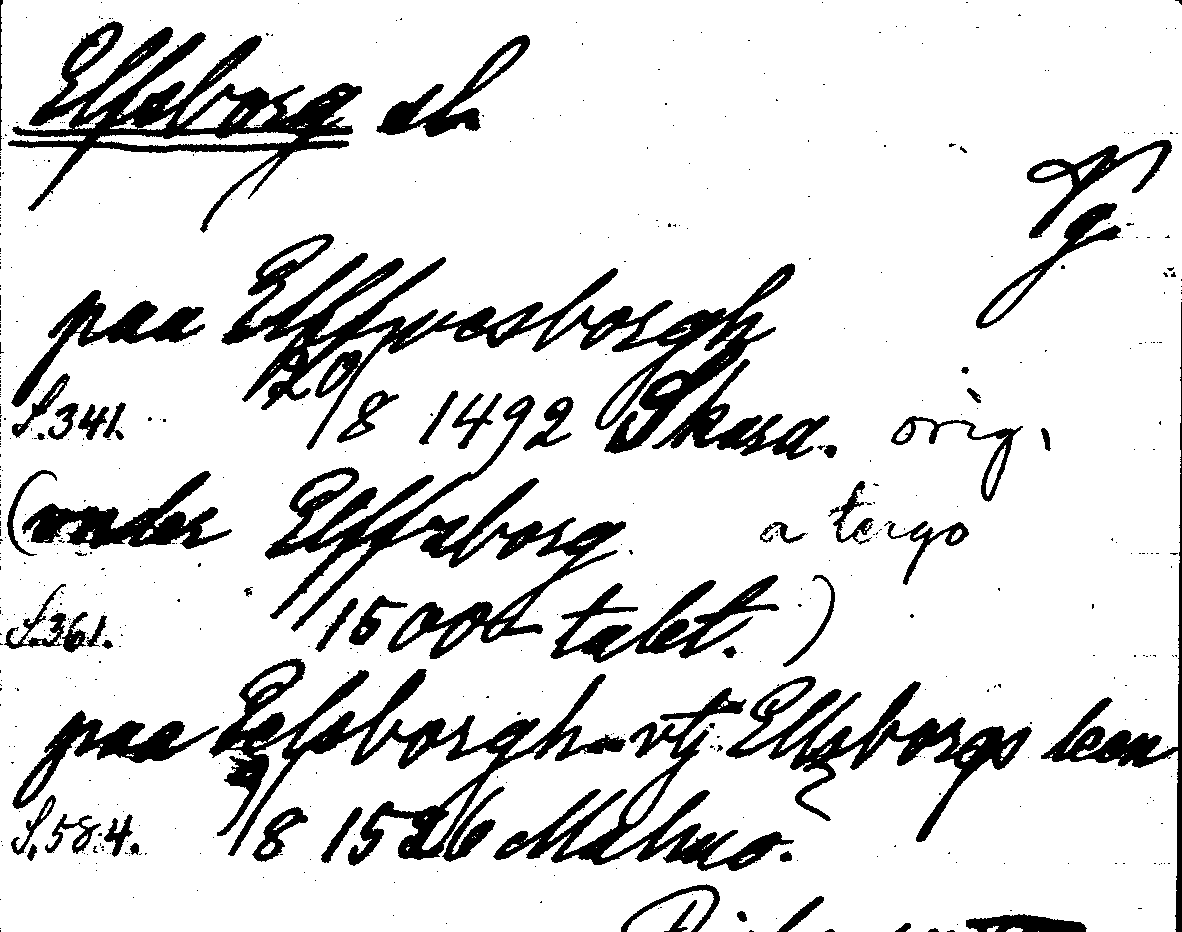 Elfsborg sl.
Vg.
paa Elffwesborgh
S.341. 20/8 1492 Skara. orig.
(vnder Elffzborg a tergo
S.361. 1500 talet.)
paa Eelsborgh - vtj Elfsborgs leen
S.584. 9/8 1526 Malmö.